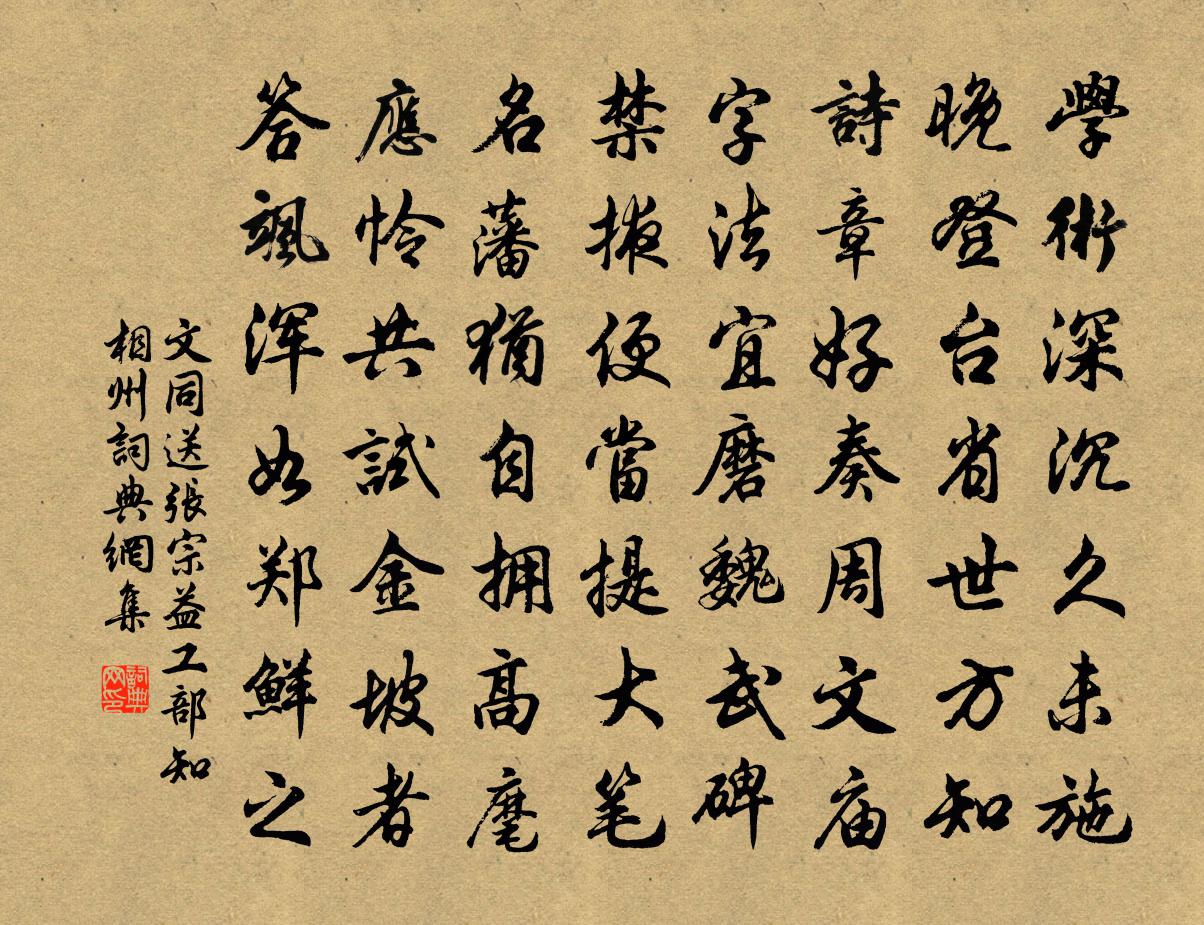 學術深沉久未施
晚登台省世方知
詩章好奏周文庙
字法宜磨魏武碑
禁掖便當提大笔
名藩猶自拥高麾
應怜共試金坡者
答颯浑如郑鮮之
文同送張宗益工部知
相州詞典網集
詞典网印